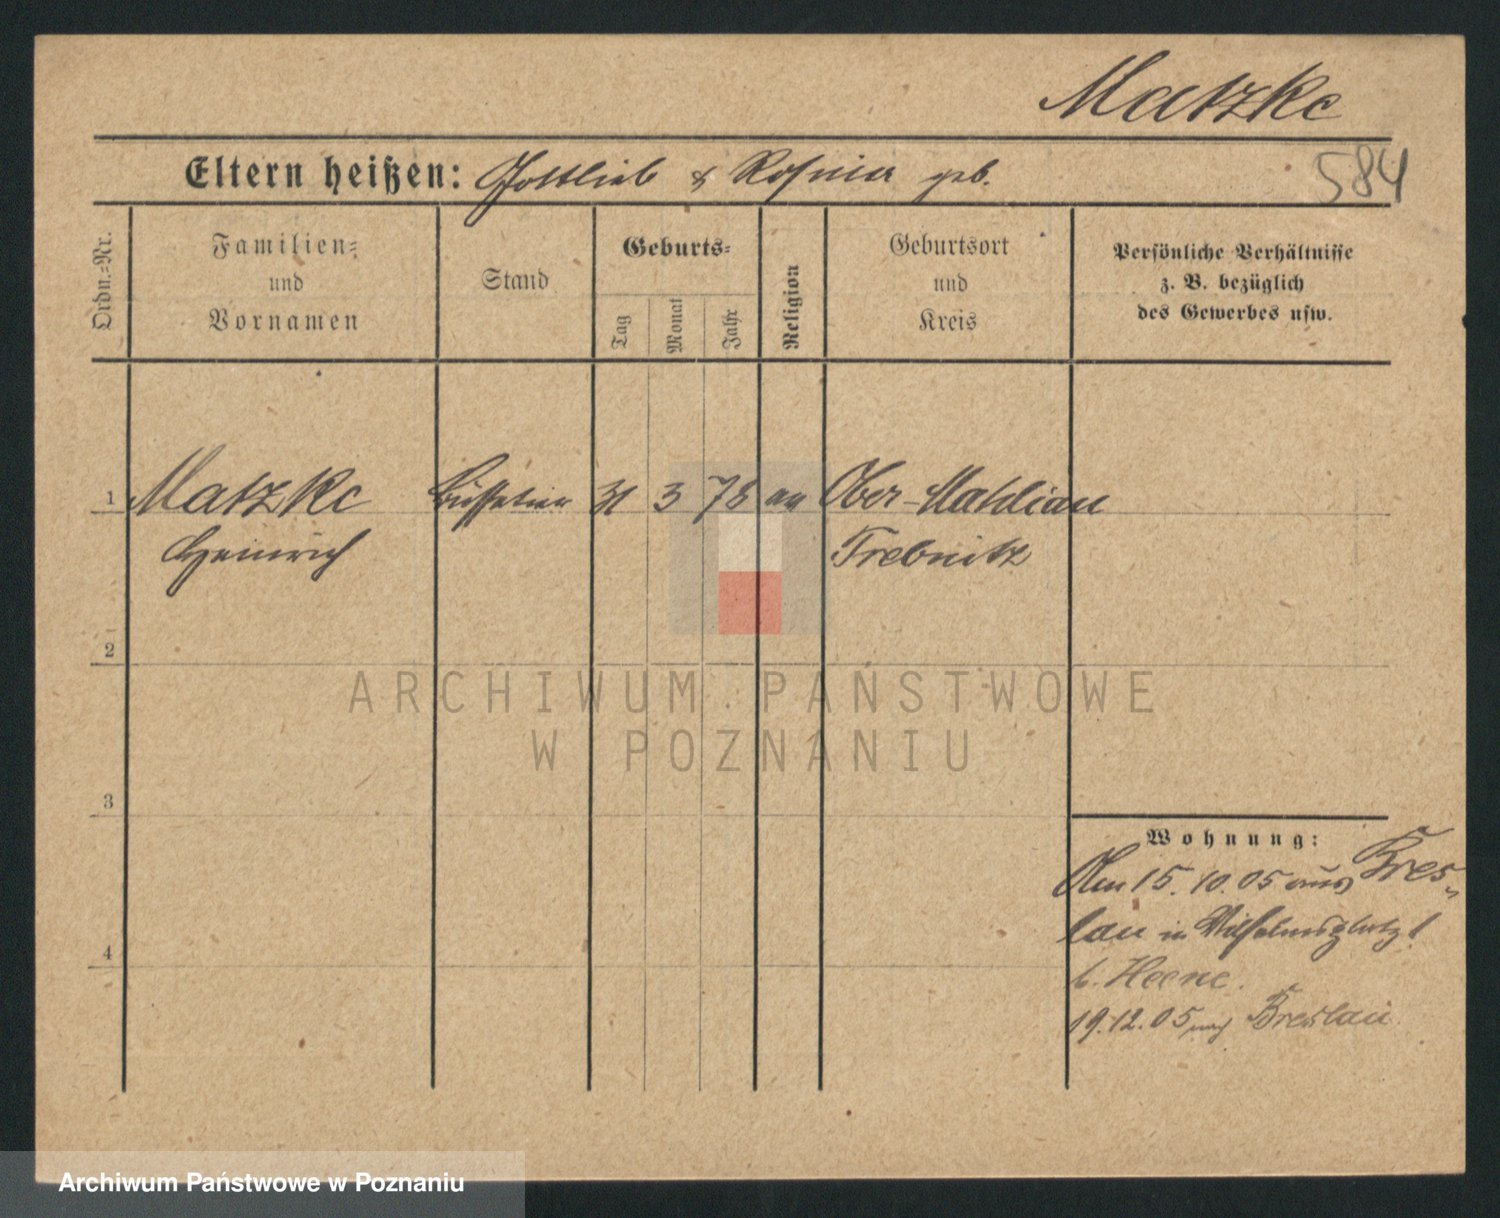 Matzke
Eltern heißen: Gottlieb & Rosina geb.
584
Ordn.-Nr.
Familien-
und
Vornamen
Stand
Geburts-
Tag
Monat
Jahr
Religion
Geburtsort
und
Kreis
Persönliche Verhältnisse
z. B. bezüglich
des Gewerbes usw.
1 Matzke Büffetier 31 3 78 Ober-Mahlian
Heinrich Trebnitz
2
3
4
Wohnung:
15.10.05 aus Bres-
lau in Wilhelmsplatz 1
b. Heene.
19.12.05 nach Breslau
ARCHIWUM PAŃSTWOWE
W POZNANIU
Archiwum Państwowe w Poznaniu